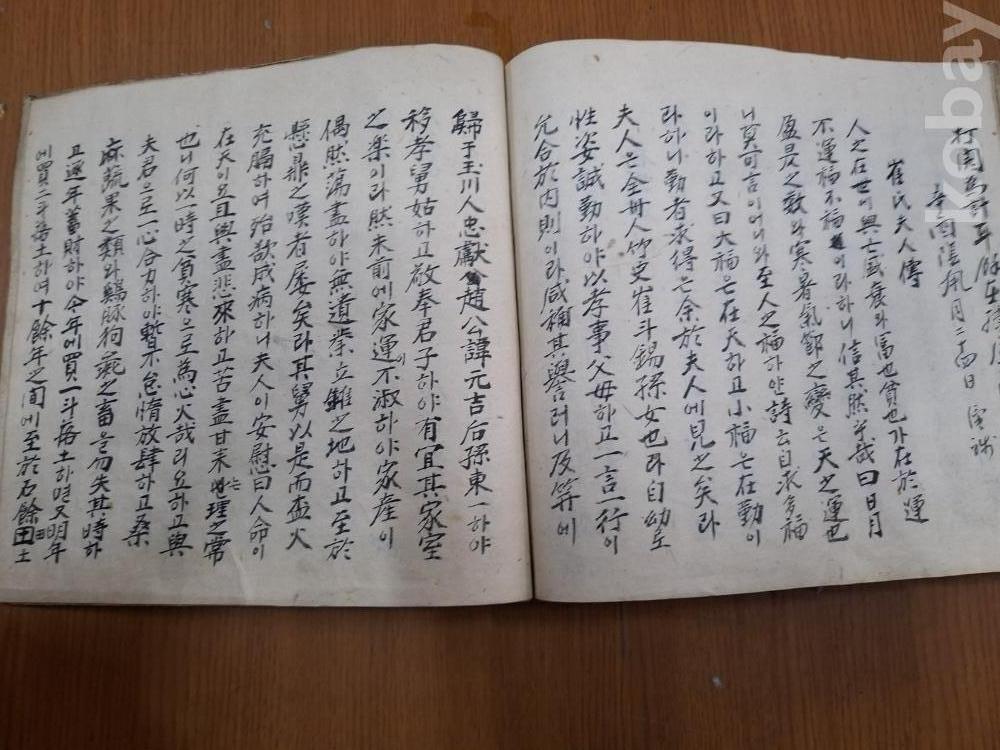 崔氏夫人傳
人之在世에興亡盛衰와富也貧也가在於運
不運福不福이라하니信其然乎哉曰日月
盈昃之數와寒暑氣節之變은天之運也
니莫可言이어니와至人之福하얀詩云自求多福
이라하고又曰大福은在天하고小福은在勤이
라하니勤者求得은余於夫人에見之矣라
夫人은全州人竹史崔斗錫孫女也라自幼로
性姿誠勤하야以孝事父母하고一言一行이
允合於內則이라咸稱其譽러니及笄에
歸于玉川人忠獻公趙公諱元吉后孫東一하야
移孝舅姑하고敬奉君子하야有宜其家室
之樂이라然未前에家運이不淑하야家産이
偶然蕩盡하야無道拳立錐之地하고至於
懸鼎之嘆者屢矣라其舅以是而盃火
充腸하여殆欲成病하니夫人이安慰曰人命이
在天이요且興盡悲來하고苦盡甘來는理之常
也니何以一時之貧寒으로爲心火哉리요하고與
夫君으로一心合力하야暫不怠惰放肆하고桑
麻蔬果之類와鷄豚狗彘之畜을勿失其時하
고逐年蓄財하야今年에買一斗落土하며又明年
에買二斗落土하여十餘年之間에至於石餘田土
kebay